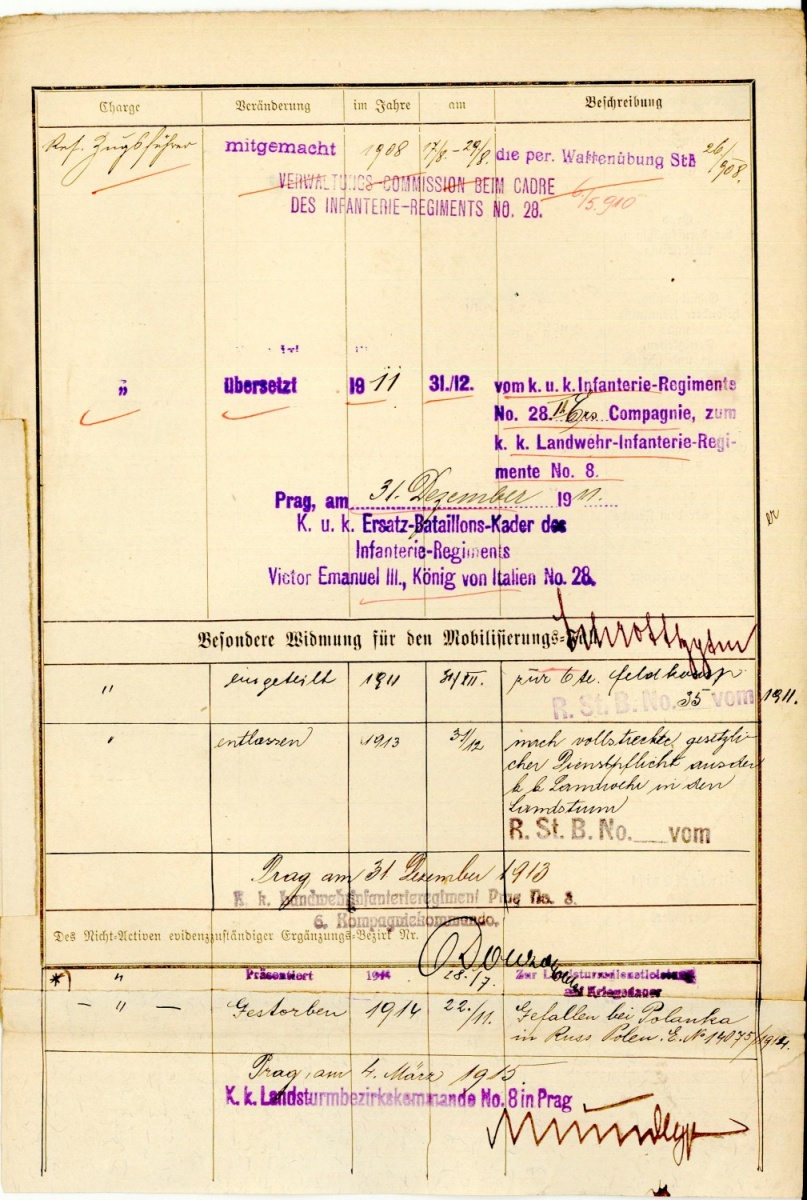 Charge Veränderung im Jahre am Beschreibung
Res. Zugsführer mitgemacht 1908 17/8.-29/8. die per. Waffenübung StB 26/1908.
VERWALTUNGS-COMMISSION BEIM CADRE 6/5.910
DES INFANTERIE-REGIMENTS NO. 28.
„ übersetzt 1911 31./12. vom k. u. k. Infanterie-Regiments
No. 28. Compagnie, zum
k. k. Landwehr-Infanterie-Regi-
mente No. 8.
Prag, am 31. Dezember 1911.
K. u. k. Ersatz-Bataillons-Kader des
Infanterie-Regiments
Victor Emanuel III., König von Italien No. 28.
er
Besondere Widmung für den Mobilisierungs-Fall
" eingeteilt 1911 31/XII. zur 6 te. Feldkomp
R. St. B. No. 35 vom 1911.
" entlassen 1913 31/12 nach vollstreckte gesetzli-
cher Dienstpflicht aus der
k k Landwehr in den
Landsturm
R. St. B. No. vom
Prag am 31 Dezember 1913
K. k. Landwehrinfanterieregiment Prag No. 8.
6. Kompagniekommando.
Des Nicht-Activen evidenzzuständiger Ergänzungs-Bezirk Nr.
*) " Präsentiert 1914 28./7. Zur Landsturmdienstleistung
auf Kriegsdauer
— " — Gestorben 1914 22./11. Gefallen bei Polanka
in Russ Polen. E. No 14075/1914.
Prag, am 4. März 1915.
K. k. Landsturmbezirkskommando No. 8 in Prag